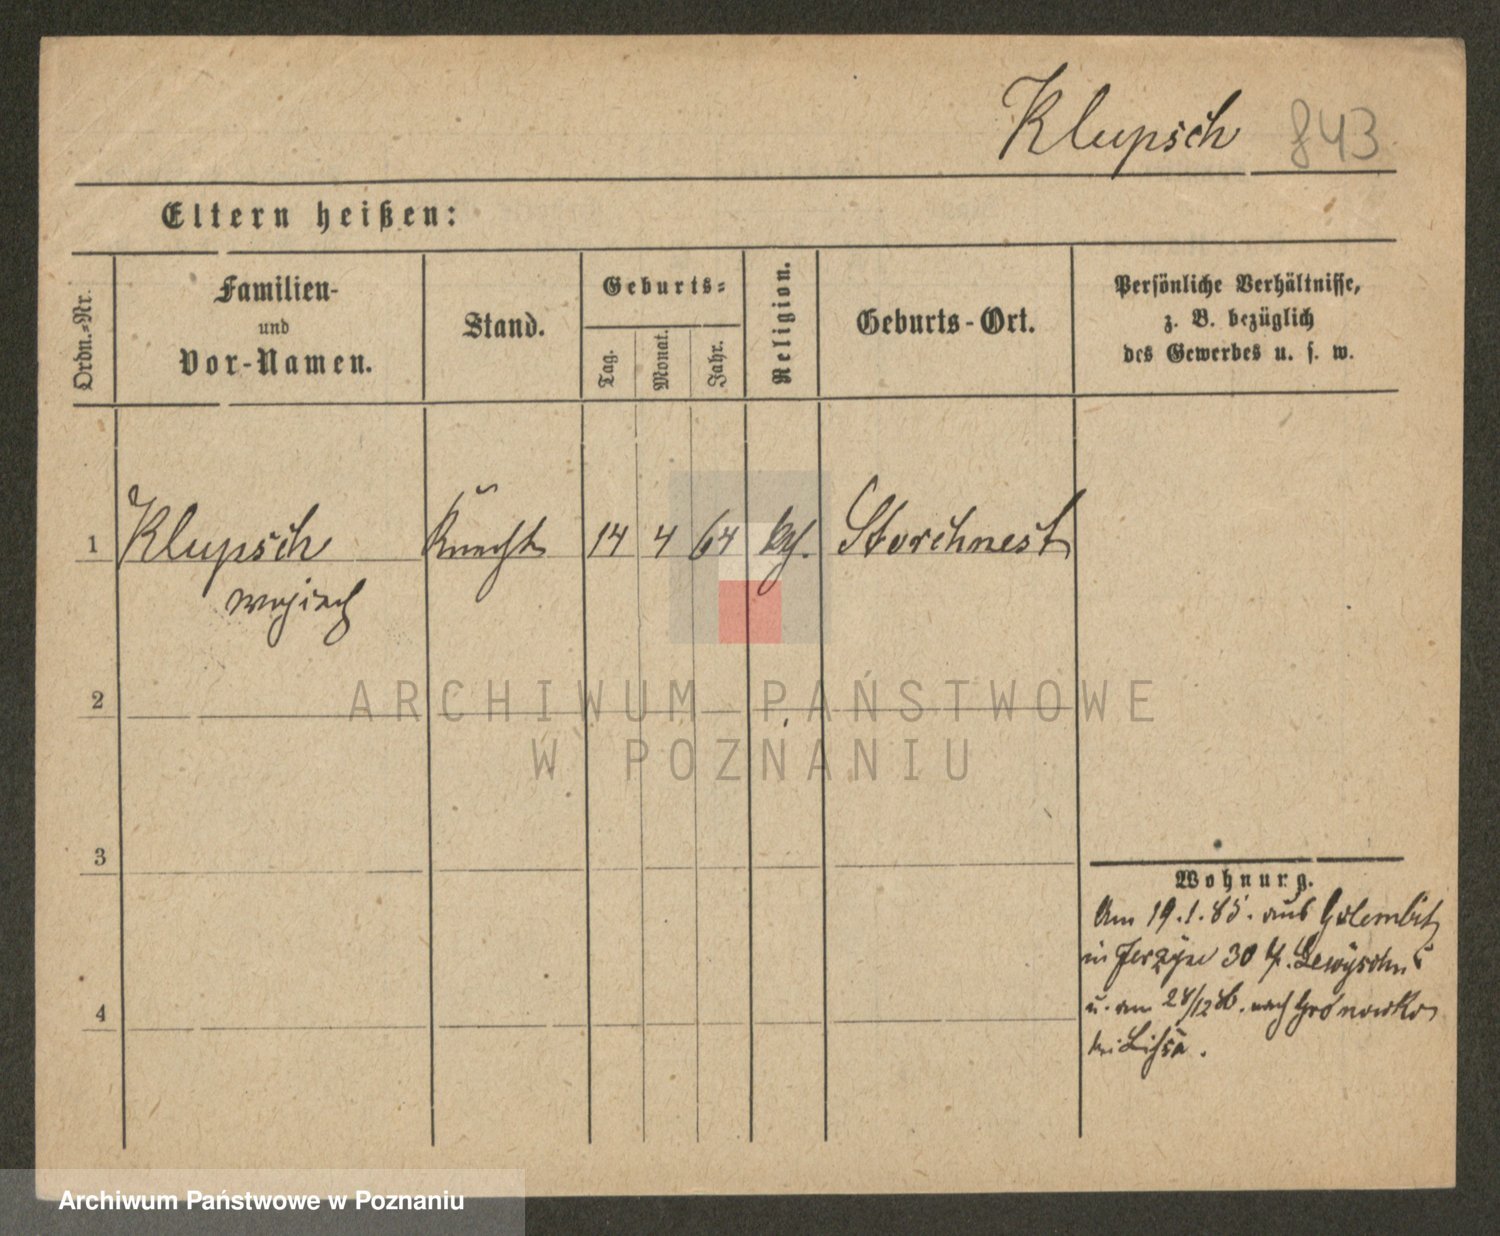 Klupsch 843
Eltern heißen:
Ordn.-Nr.
Familien-
und
Vor-Namen.
Stand.
Geburts-
Tag.
Monat.
Jahr.
Religion.
Geburts-Ort.
Persönliche Verhältnisse,
z. B. bezüglich
des Gewerbes u. s. w.
1 Klupsch Knecht 14 4 64 kth. Storchnest
Wojciech
2
3
4
Wohnung.
Am 19.1.85. aus Golembitz
in Jerzyce 30 b. Lewysohn
u. am 28/12 86. nach Gronowko
bei Lissa.
ARCHIWUM PAŃSTWOWE
W POZNANIU
Archiwum Państwowe w Poznaniu